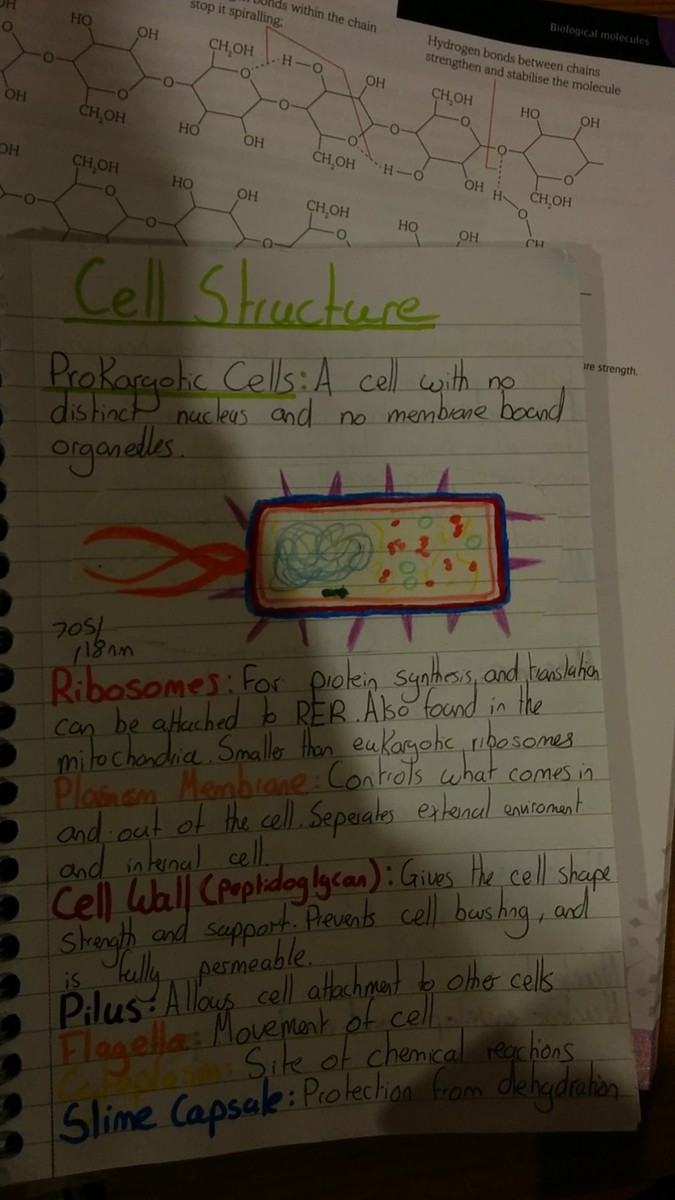 Biological molecules
bonds within the chain
stop it spiralling.
Hydrogen bonds between chains
strengthen and stabilise the molecule
HO
OH
CH₂OH
H
O
OH
CH₂OH
HO
OH
O
O
O
O
O
OH
CH₂OH
HO
OH
CH₂OH
H
O
OH
CH₂OH
H
O
OH
CH₂OH
HO
OH
CH₂OH
HO
OH
CH
O
O
O
are strength.
Cell Structure
Prokaryotic Cells: A cell with no
distinct nucleus and no membrane bound
organelles.
70S/
18nm
Ribosomes: For protein synthesis, and translation
can be attached to RER. Also found in the
mitochondria. Smaller than eukaryotic ribosomes
Plasmam Membrane: Controls what comes in
and out of the cell. Seperates external enviroment
and internal cell.
Cell Wall (Peptidoglycan): Gives the cell shape
strength and support. Prevents cell bursting, and
is fully permeable.
Pilus: Allows cell attachment to other cells
Flagella: Movement of cell.
Cytoplasm: Site of chemical reactions
Slime Capsule: Protection from dehydration